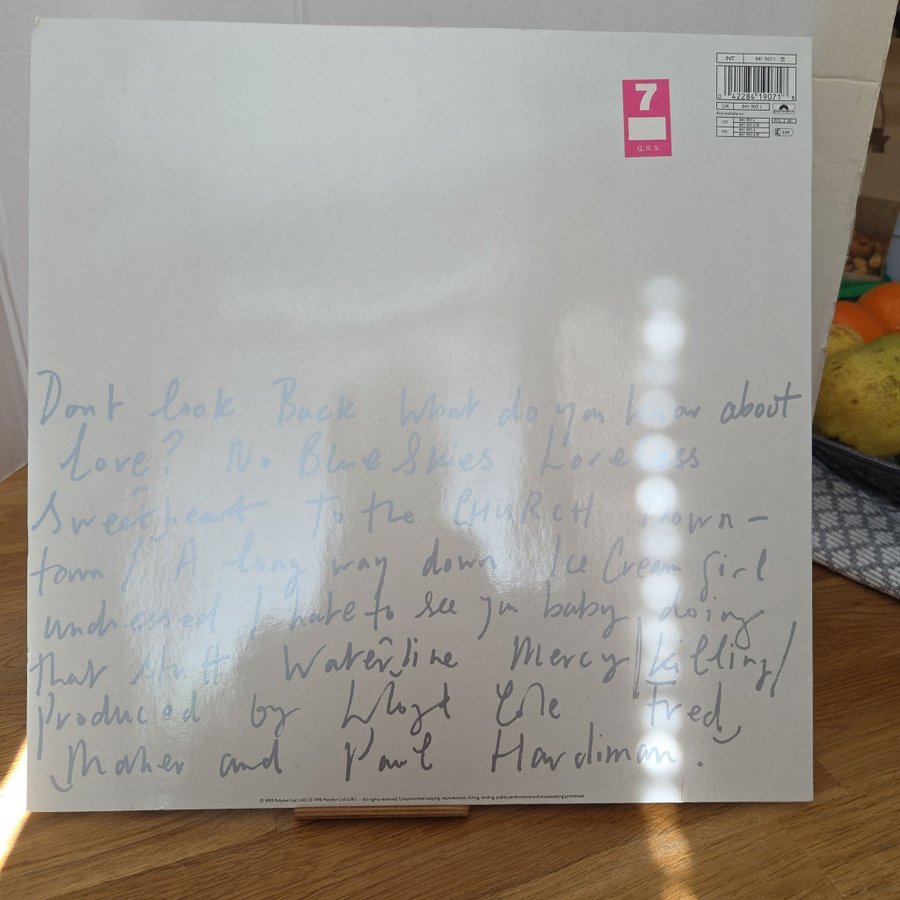 7
G.R.S.
INT 841 907-1
0 42284 19071 8
UK 841 907-1
Also available on:
CD 841 907-2
MC 841 907-4
Dont look Back What do you know about
love? No Blue Skies Loveless
Sweetheart To the CHURCH Down-
town / A long way down Ice Cream Girl
undressed I hate to see you baby doing
that stuff Waterline Mercy/killing/
produced by Lloyd Cole Fred
Maher and Paul Hardiman.
Ⓟ 1990 Polydor Ltd (UK) © 1990 Polydor Ltd (UK) All rights reserved. Unauthorised copying, reproduction, hiring, lending, public performance and broadcasting prohibited.